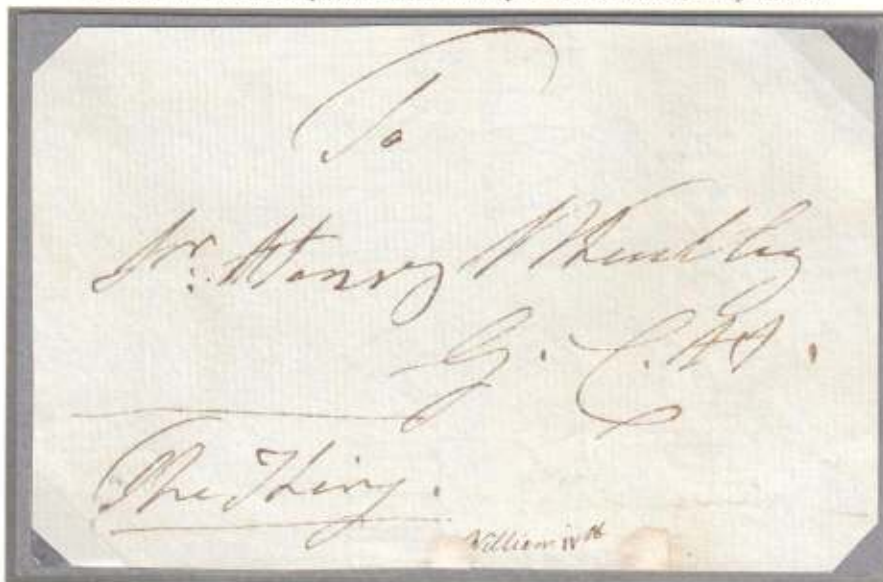 To
Sr. Henry Wheatley
G. C. H.
The King.
William IVth